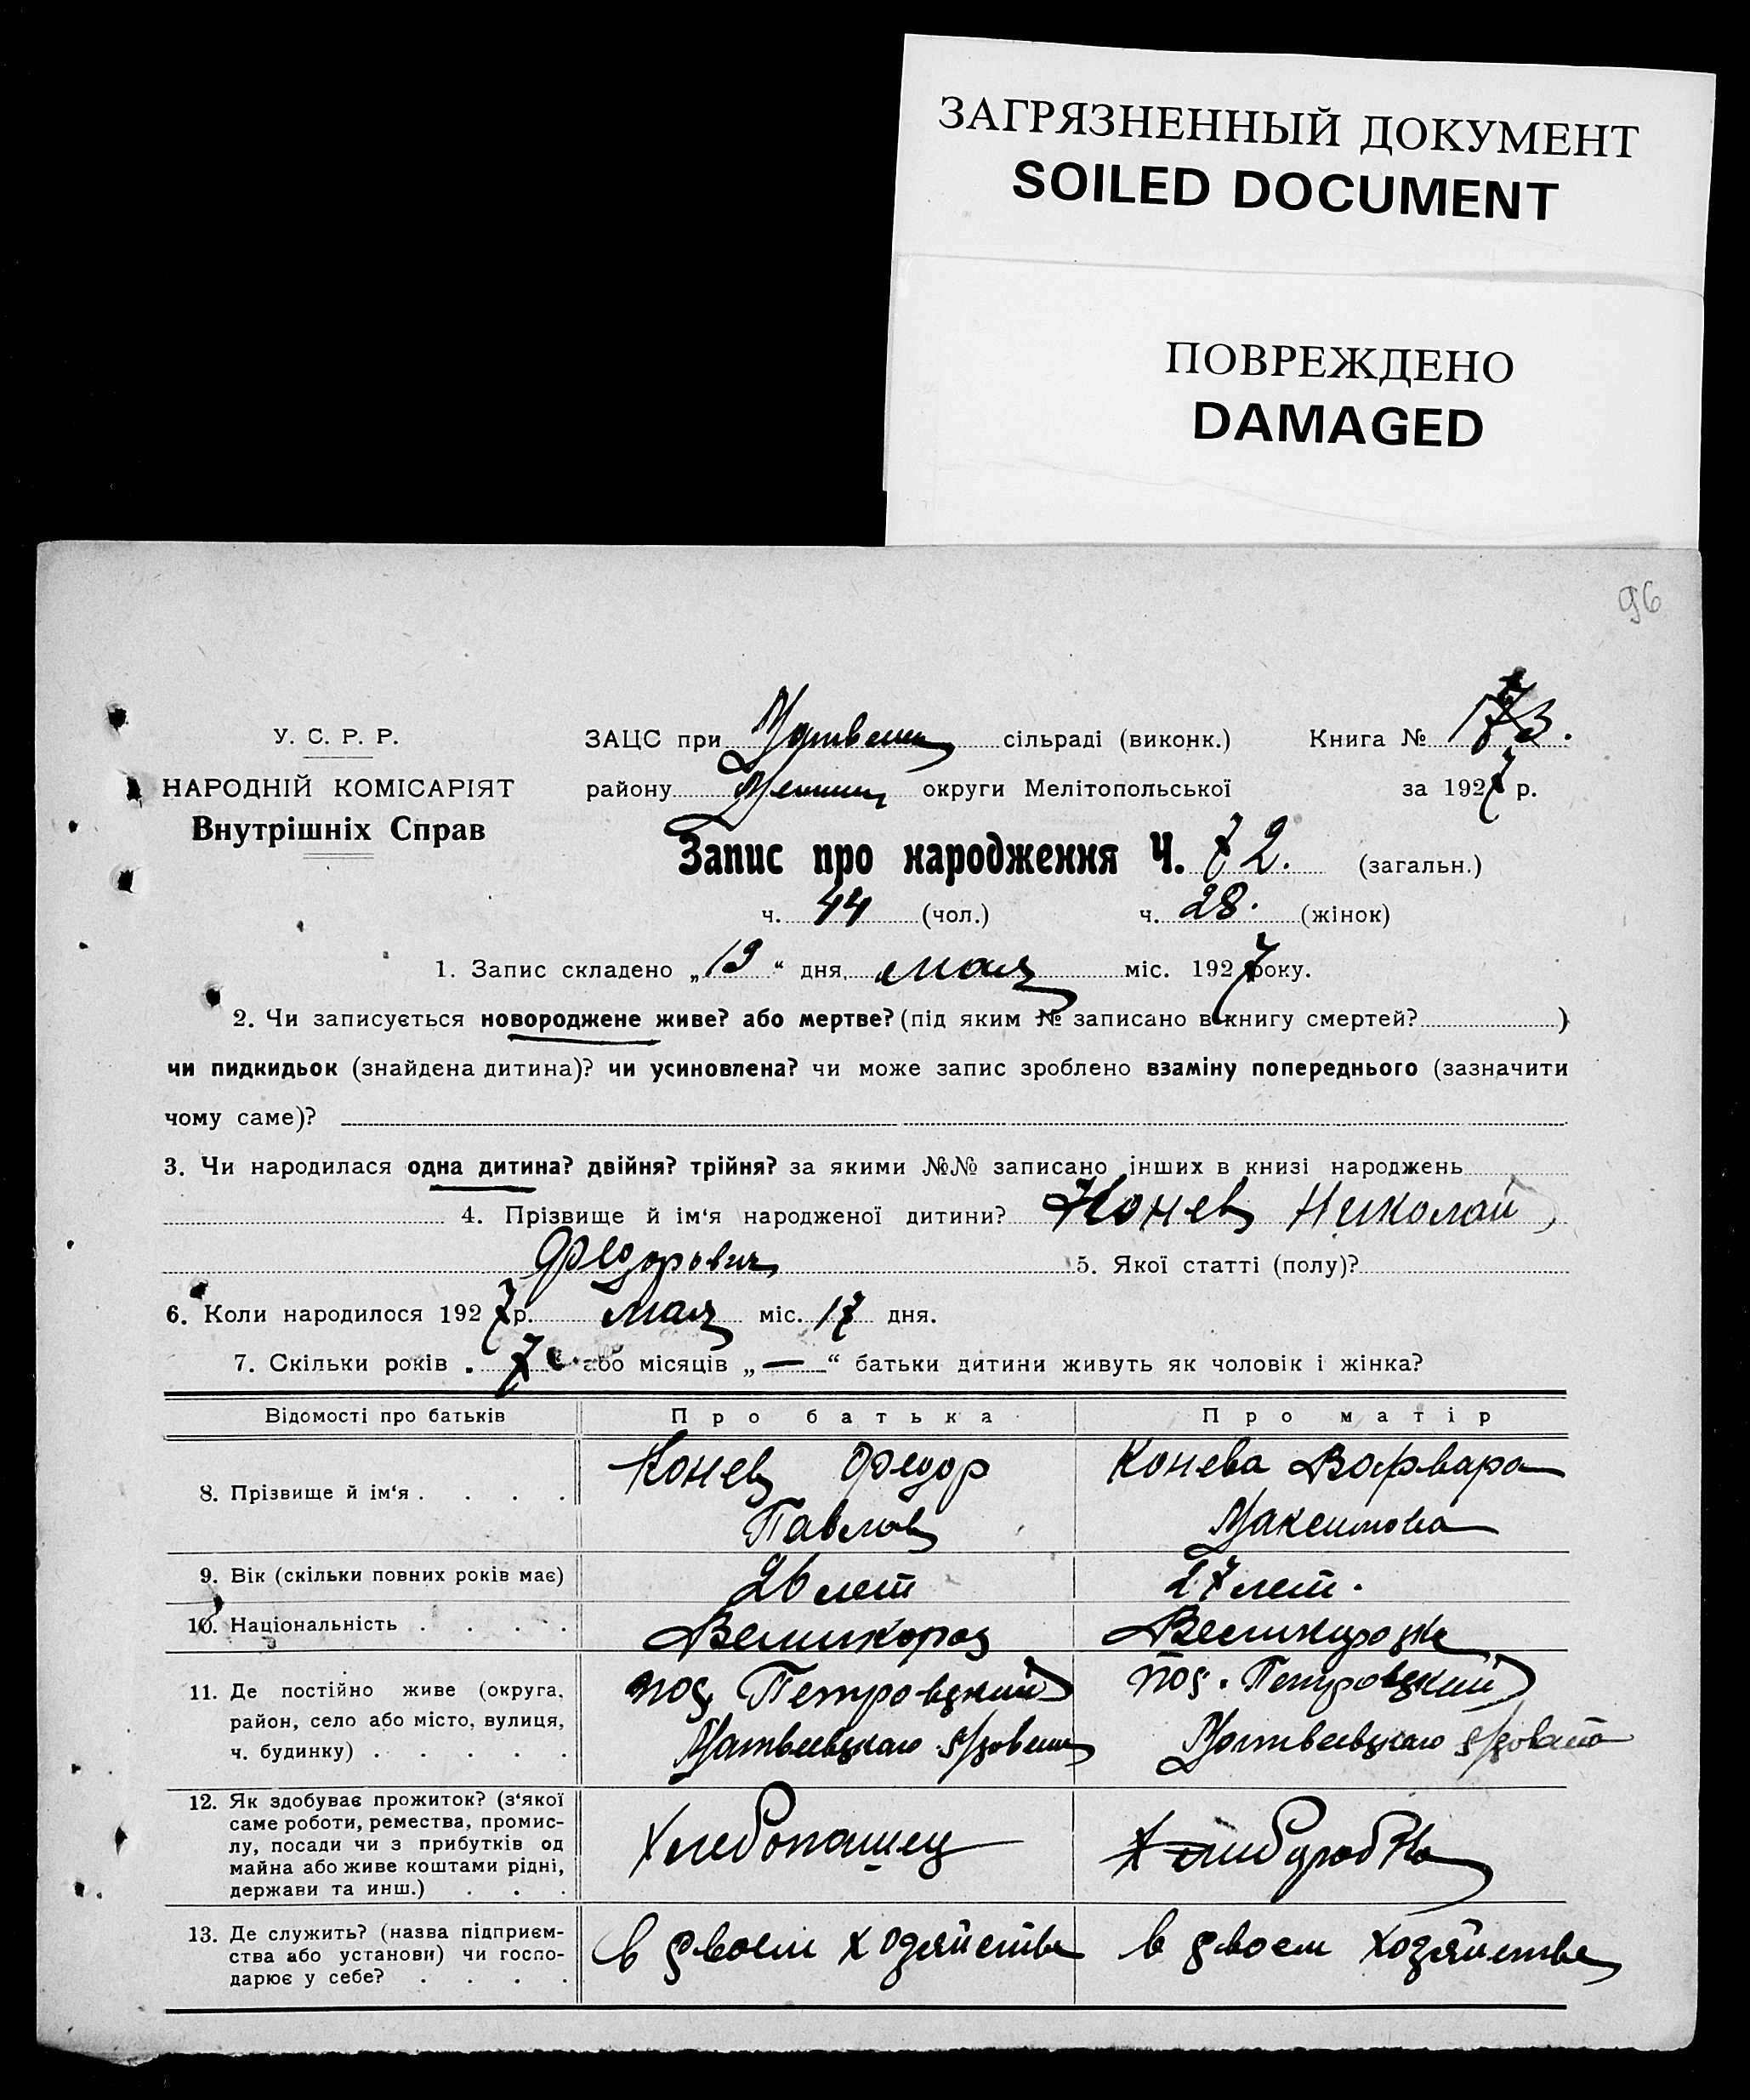 ЗАГРЯЗНЕННЫЙ ДОКУМЕНТ
SOILED DOCUMENT
ПОВРЕЖДЕНО
DAMAGED
96
У. С. Р. Р.
НАРОДНІЙ КОМІСАРІЯТ
Внутрішніх Справ
ЗАЦС при сільраді (виконк.) Книга №
району округи Мелітопольської за 1927 р.
Запис про народження Ч. 72. (загальн.)
ч. 44 (чол.) ч. 28. (жінок)
1. Запис складено „19“ дня мая міс. 1927 року.
2. Чи записується новороджене живе? або мертве? (під яким № записано в книгу смертей? )
чи пидкидьок (знайдена дитина)? чи усиновлена? чи може запис зроблено взаміну попереднього (зазначити
чому саме)?
3. Чи народилася одна дитина? двійня? трійня? за якими №№ записано інших в книзі народжень
4. Прізвище й ім‘я народженої дитини? Конев Николай
Федорович 5. Якої статті (полу)?
6. Коли народилося 1927 р. мая міс. 17 дня.
7. Скільки років 7 або місяців „—“ батьки дитини живуть як чоловік і жінка?
Відомості про батьків Про батька Про матір
8. Прізвище й ім‘я . . . . Конев Федор Павлов Конева Варвара Максимова
9. Вік (скільки повних років має) 26 лет 27 лет.
10. Національність . . . .
11. Де постійно живе (округа,
район, село або місто, вулиця,
ч. будинку) . . . . .
пос. Петровский пос. Петровский
Матвеевскаго Матвеевскаго
12. Як здобуває прожиток? (з‘якої
саме роботи, ремества, промис-
лу, посади чи з прибутків од
майна або живе коштами рідні,
держави та инш.) . . .
Хлебопашец
13. Де служить? (назва підприєм-
ства або установи) чи госпо-
дарює у себе? . . . .
в своем хозяйстве в своем хозяйстве